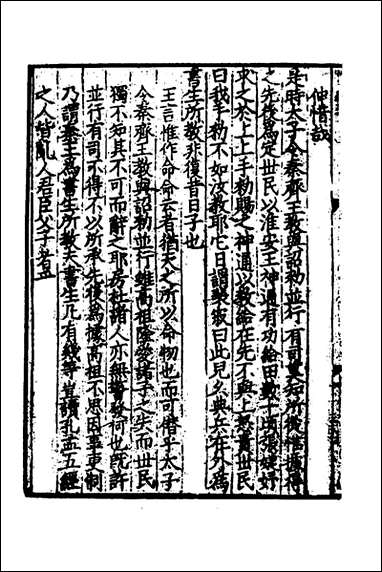 仲惜哉
是時太子令秦齊王教與詔勑並行有司莫知所從惟據得
之先後爲定世民以淮安王神通有功給田數十頃張婕妤
求之於上上手勑賜之神通以教給在先不與上怒責世民
曰我手勑不如汝教耶它日謂裴寂曰此兒久典兵在外爲
書生所教非復昔日子也
王言惟作命命云者猶天之所以命物也而可僭乎太子
令秦齊王教與詔勑並行雖高祖隆愛諸子之失而世民
獨不知其不可而辭之耶房杜諸人亦無警發何也既許
並行有司不得不以所承先後爲據高祖不思因是更制
乃謂秦王爲書生所教夫書生凡有幾等皆讀孔孟五經
之人皆亂人君臣父子者